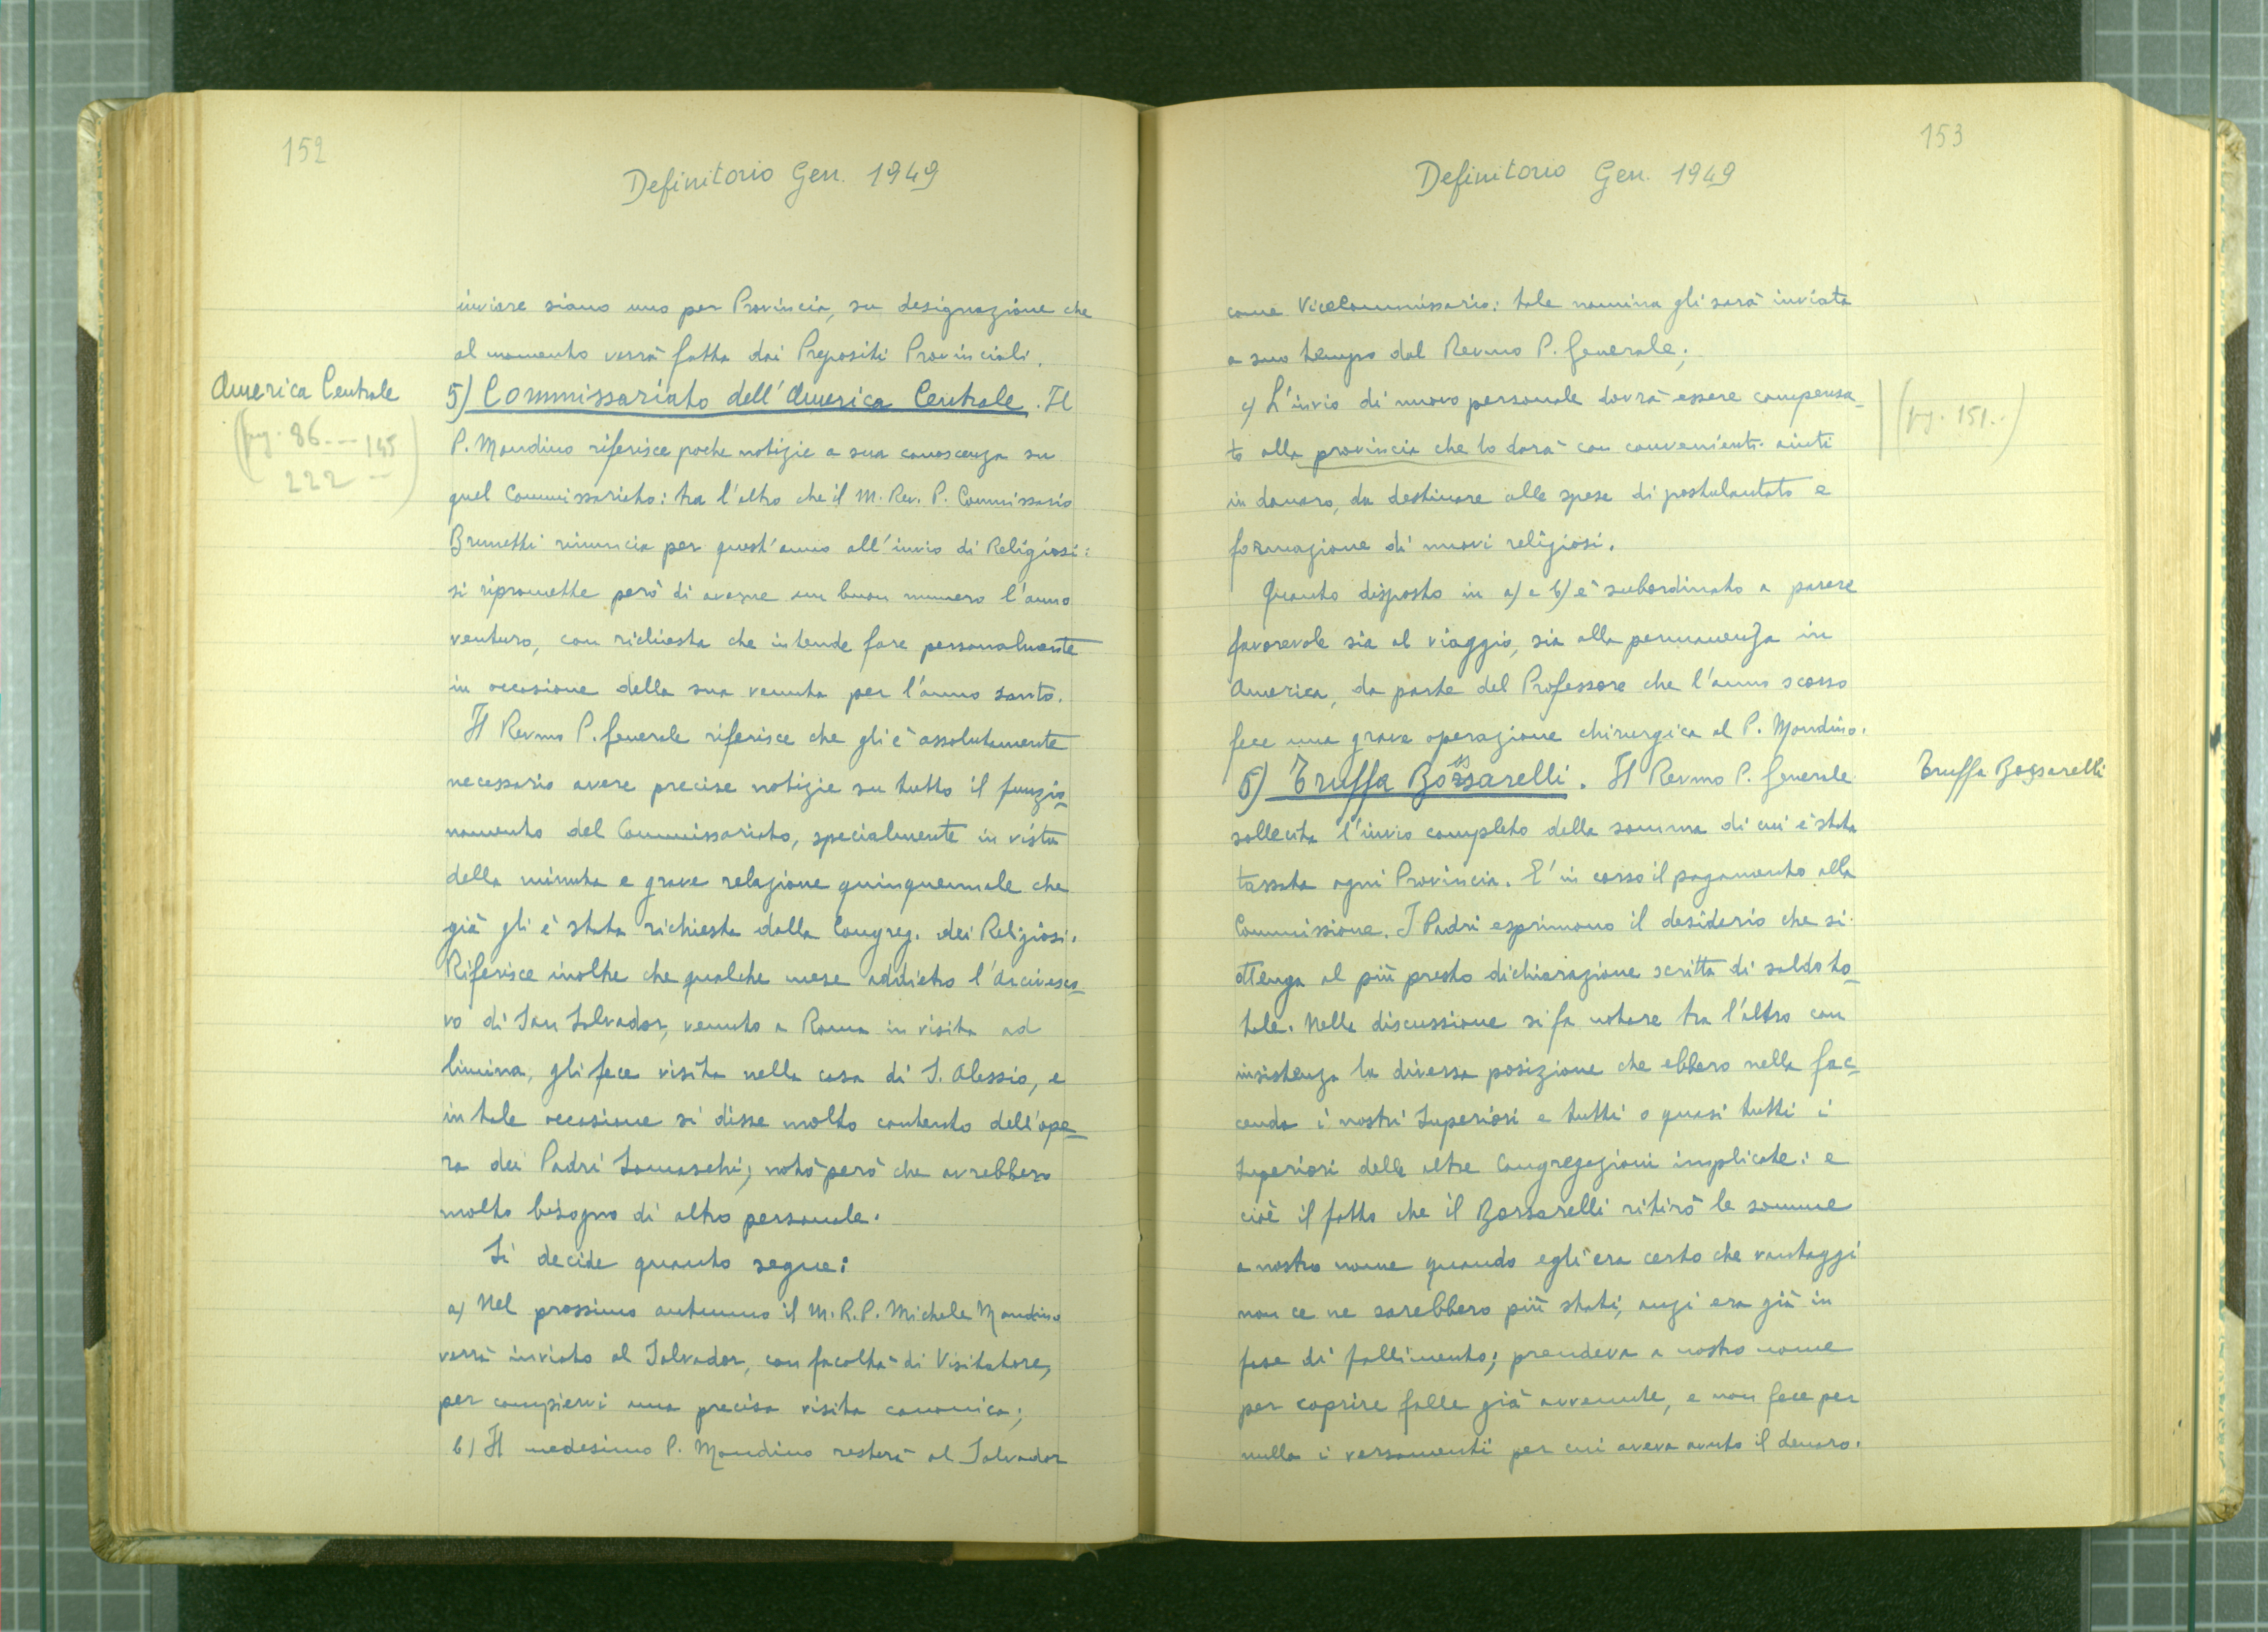 152
Definitorio Gen. 1949
inviare siano uno per Provincia, su designazione che
al momento verrà fatta dai Prepositi Provinciali.
America Centrale
(pag. 86 --- 145
222 --)
5) Commissariato dell'America Centrale. Il
P. Mondino riferisce poche notizie a sua conoscenza su
quel Commissariato: tra l'altro che il M. Rev. P. Commissario
Brunetti rinuncia per quest'anno all'invio di Religiosi:
si ripromette però di averne un buon numero l'anno
venturo, con richiesta che intende fare personalmente
in occasione della sua venuta per l'anno santo.
Il Revmo P. Generale riferisce che gli è assolutamente
necessario avere precise notizie su tutto il funzio-
namento del Commissariato, specialmente in vista
della minuta e grave relazione quinquennale che
già gli è stata richiesta dalla Congreg. dei Religiosi.
Riferisce inoltre che qualche mese addietro l'Arcivesco-
vo di San Salvador, venuto a Roma in visita ad
limina, gli fece visita nella casa di S. Alessio, e
in tale occasione si disse molto contento dell'ope-
ra dei Padri Somaschi; notò però che avrebbero
molto bisogno di altro personale.
Si decide quanto segue:
a) Nel prossimo autunno il M.R.P. Michele Mondino
verrà inviato al Salvador, con facoltà di Visitatore,
per compiervi una precisa visita canonica;
b) Il medesimo P. Mondino resterà al Salvador
153
Definitorio Gen. 1949
come ViceCommissario: tale nomina gli sarà inviata
a suo tempo dal Revmo P. Generale;
c) L'invio di nuovo personale dovrà essere compensa-
to alla provincia che lo darà con convenienti aiuti
(pag. 151..)
in danaro, da destinare alle spese di postulantato e
formazione di nuovi religiosi.
Quanto disposto in a) e b) è subordinato a parere
favorevole sia al viaggio, sia alla permanenza in
America, da parte del Professore che l'anno scorso
fece una grave operazione chirurgica al P. Mondino.
6) Truffa Bossarelli. Il Revmo P. Generale
Truffa Bossarelli
sollecita l'invio completo della somma di cui è stata
tassata ogni Provincia. E' in corso il pagamento alla
Commissione. I Padri esprimono il desiderio che si
ottenga al più presto dichiarazione scritta di saldo to-
tale. Nella discussione si fa notare tra l'altro con
insistenza la diversa posizione che ebbero nella fac-
cenda i nostri Superiori e tutti o quasi tutti i
Superiori delle altre Congregazioni implicate: e
cioè il fatto che il Bossarelli ritirò le somme
a nostro nome quando egli era certo che vantaggi
non ce ne sarebbero più stati, anzi era già in
fase di fallimento; prendeva a nostro nome
per coprire falle già avvenute, e non fece per
nulla i versamenti per cui aveva avuto il denaro.